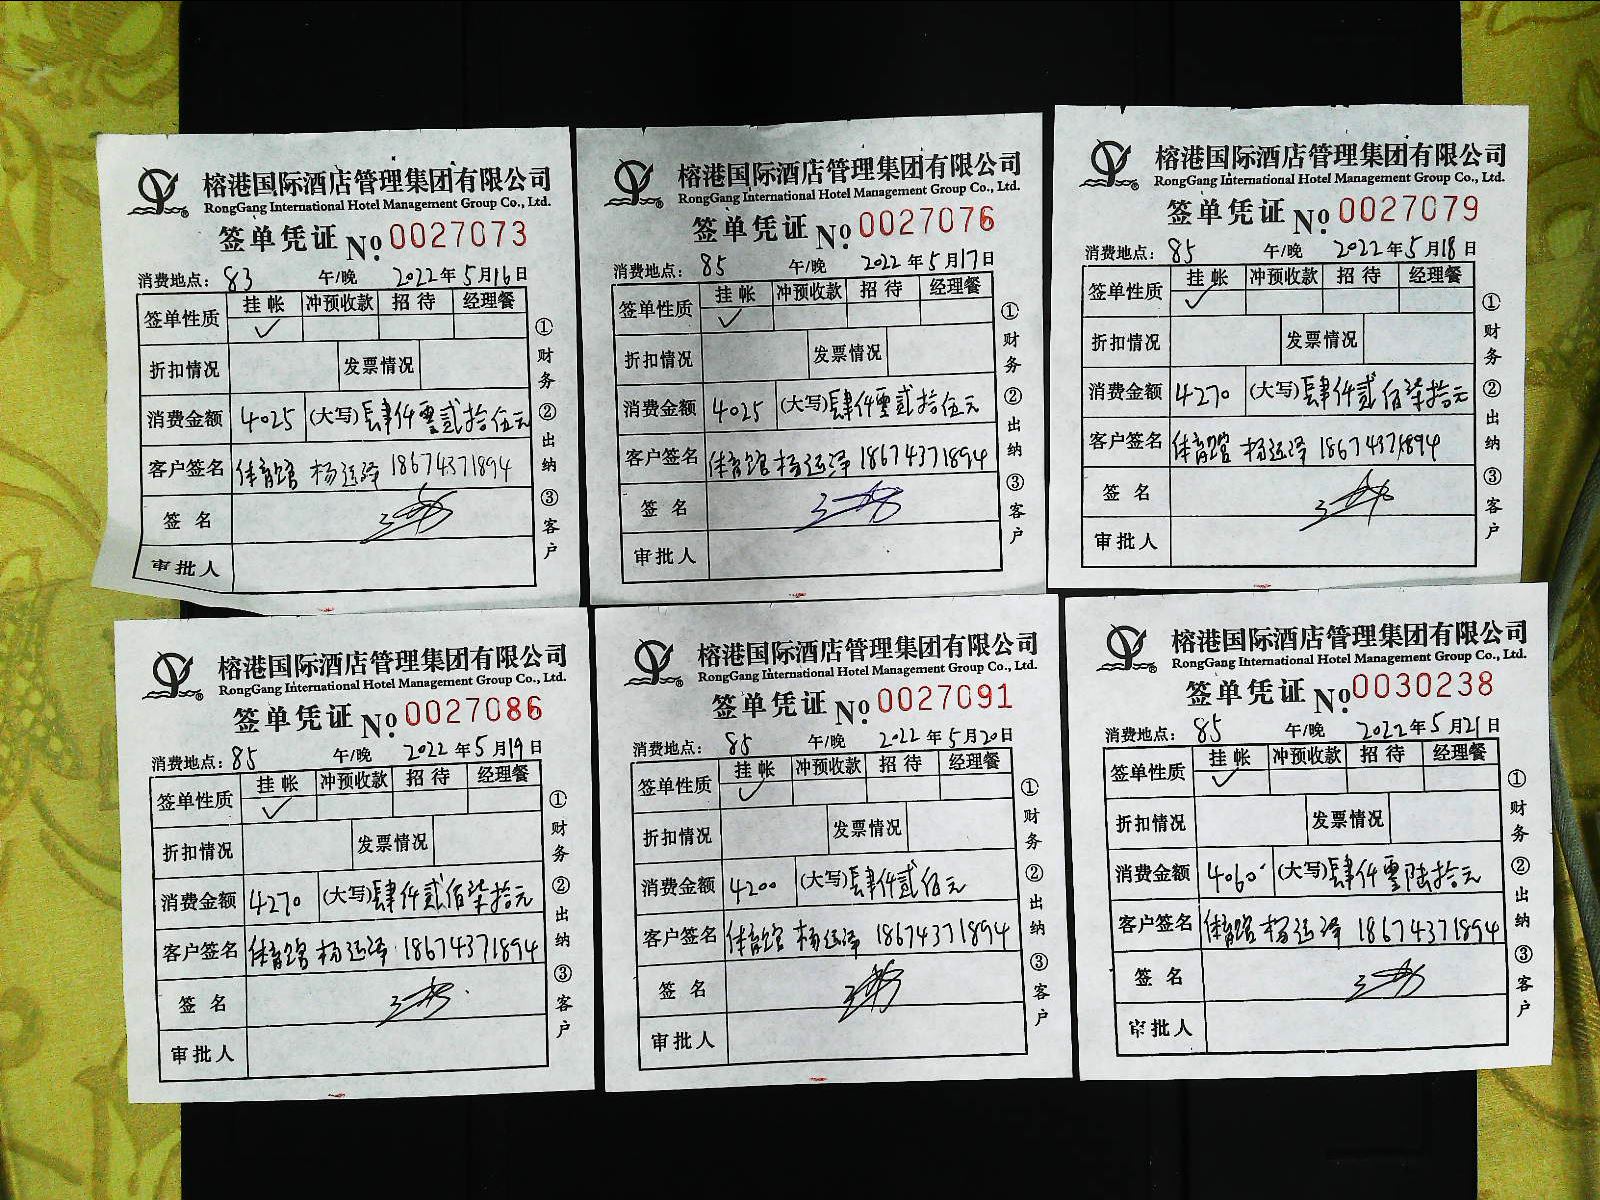 榕港国际酒店管理集团有限公司
RongGang International Hotel Management Group Co., Ltd.
签单凭证 No. 0027073
消费地点: 83 午/晚 2022年5月16日
签单性质 挂帐 冲预收款 招待 经理餐
✓
折扣情况 发票情况
消费金额 4025 (大写)肆仟零贰拾伍元
客户签名 体育馆 杨运泽 18674371894
签名
审批人
①财务 ②出纳 ③客户
榕港国际酒店管理集团有限公司
RongGang International Hotel Management Group Co., Ltd.
签单凭证 No. 0027076
消费地点: 85 午/晚 2022年5月17日
签单性质 挂帐 冲预收款 招待 经理餐
✓
折扣情况 发票情况
消费金额 4025 (大写)肆仟零贰拾伍元
客户签名 体育馆 杨运泽 18674371894
签名
审批人
①财务 ②出纳 ③客户
榕港国际酒店管理集团有限公司
RongGang International Hotel Management Group Co., Ltd.
签单凭证 No. 0027079
消费地点: 85 午/晚 2022年5月18日
签单性质 挂帐 冲预收款 招待 经理餐
✓
折扣情况 发票情况
消费金额 4270 (大写)肆仟贰佰柒拾元
客户签名 体育馆 杨运泽 18674371894
签名
审批人
①财务 ②出纳 ③客户
榕港国际酒店管理集团有限公司
RongGang International Hotel Management Group Co., Ltd.
签单凭证 No. 0027086
消费地点: 85 午/晚 2022年5月19日
签单性质 挂帐 冲预收款 招待 经理餐
✓
折扣情况 发票情况
消费金额 4270 (大写)肆仟贰佰柒拾元
客户签名 体育馆 杨运泽 18674371894
签名
审批人
①财务 ②出纳 ③客户
榕港国际酒店管理集团有限公司
RongGang International Hotel Management Group Co., Ltd.
签单凭证 No. 0027091
消费地点: 85 午/晚 2022年5月20日
签单性质 挂帐 冲预收款 招待 经理餐
✓
折扣情况 发票情况
消费金额 4200 (大写)肆仟贰佰元
客户签名 体育馆 杨运泽 18674371894
签名
审批人
①财务 ②出纳 ③客户
榕港国际酒店管理集团有限公司
RongGang International Hotel Management Group Co., Ltd.
签单凭证 No. 0030238
消费地点: 85 午/晚 2022年5月21日
签单性质 挂帐 冲预收款 招待 经理餐
✓
折扣情况 发票情况
消费金额 4060 (大写)肆仟零陆拾元
客户签名 体育馆 杨运泽 18674371894
签名
审批人
①财务 ②出纳 ③客户